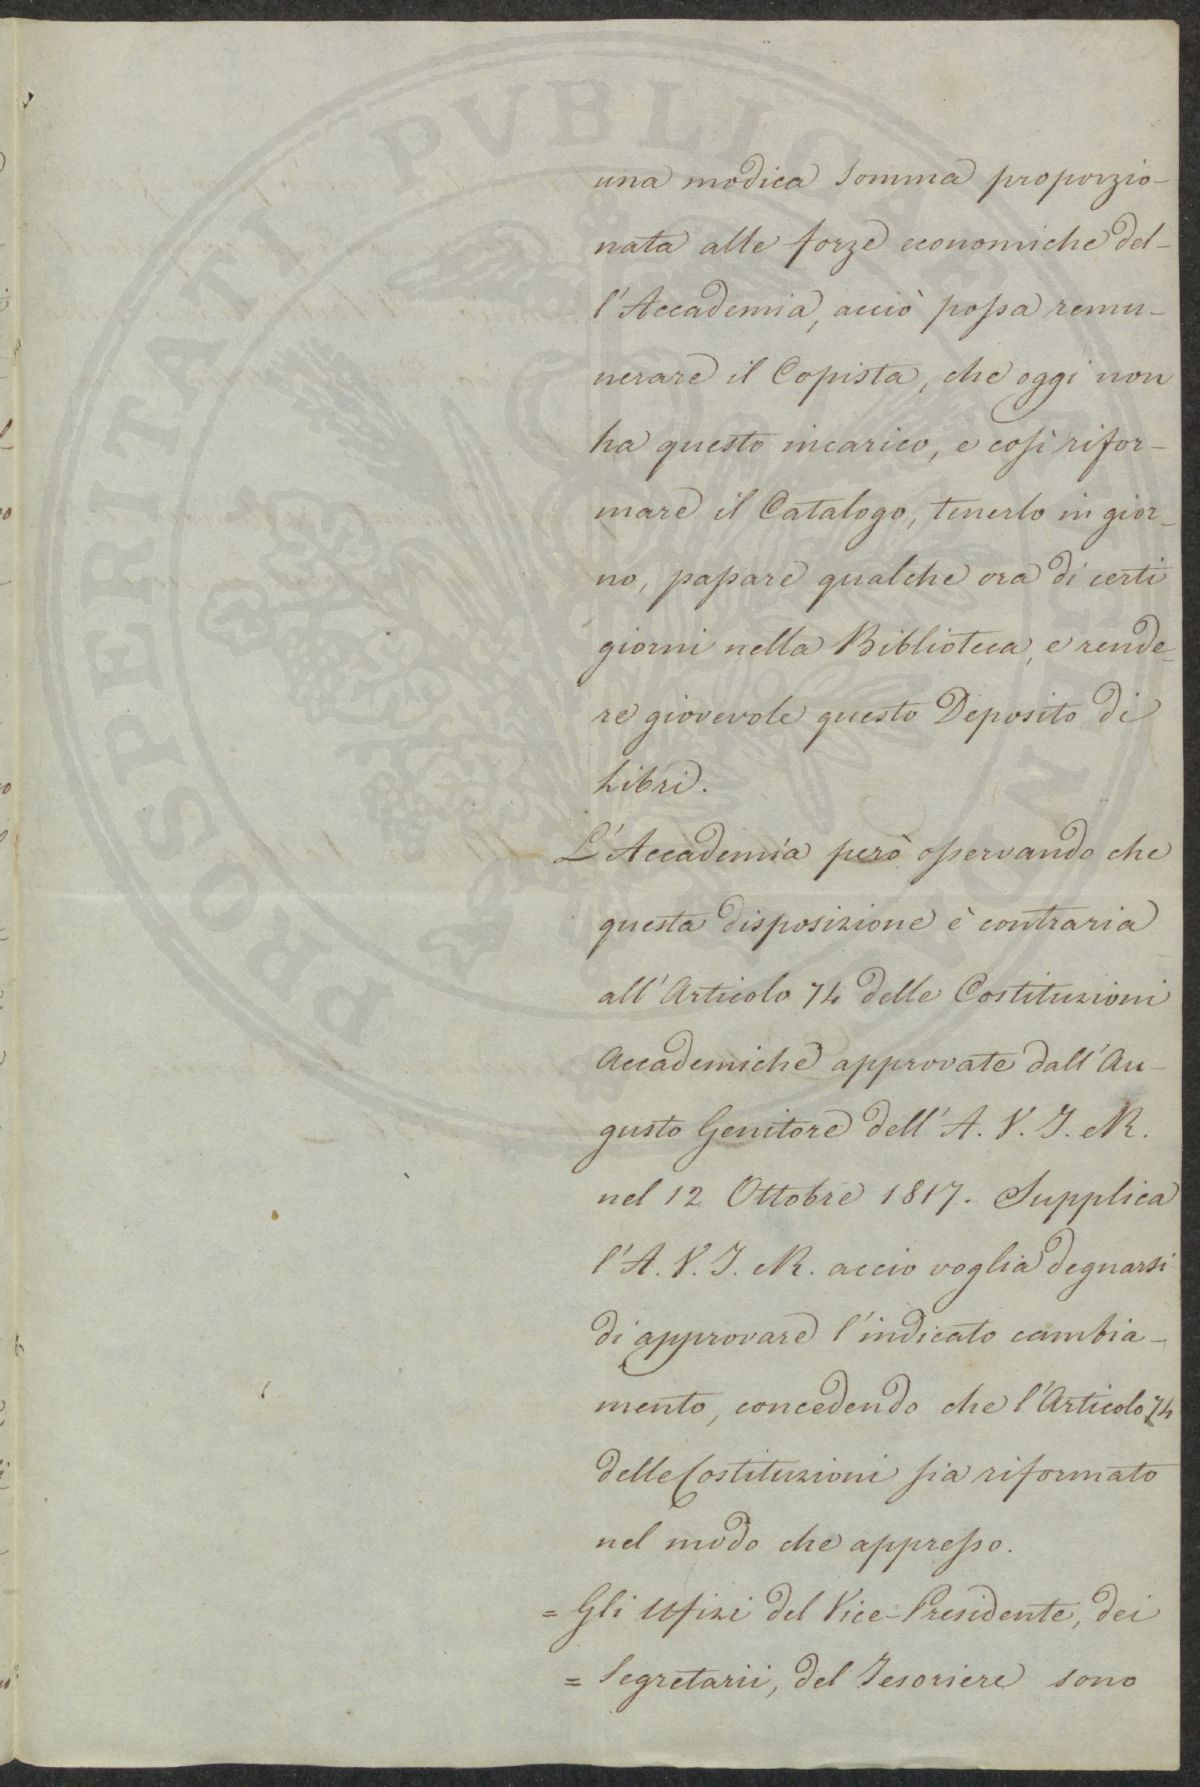 una modica somma proporzio-
nata alle forze economiche del-
l'Accademia, acciò possa remu-
nerare il Copista, che oggi non
ha questo incarico, e così rifor-
mare il Catalogo, tenerlo in gior-
no, passare qualche ora di certi
giorni nella Biblioteca, e rende-
re giovevole questo Deposito di
Libri.
L'Accademia però osservando che
questa disposizione è contraria
all'Articolo 74 delle Costituzioni
Accademiche approvate dall'Au-
gusto Genitore dell'A. V. I. e R.
nel 12 Ottobre 1817. Supplica
l'A. V. I. e R. accio voglia degnarsi
di approvare l'indicato cambia-
mento, concedendo che l'Articolo 74
delle Costituzioni sia riformato
nel modo che appresso.
= Gli Ufizi del Vice-Presidente, dei
= Segretarii, del Tesoriere sono
PROSPERITATI PVBLICAE